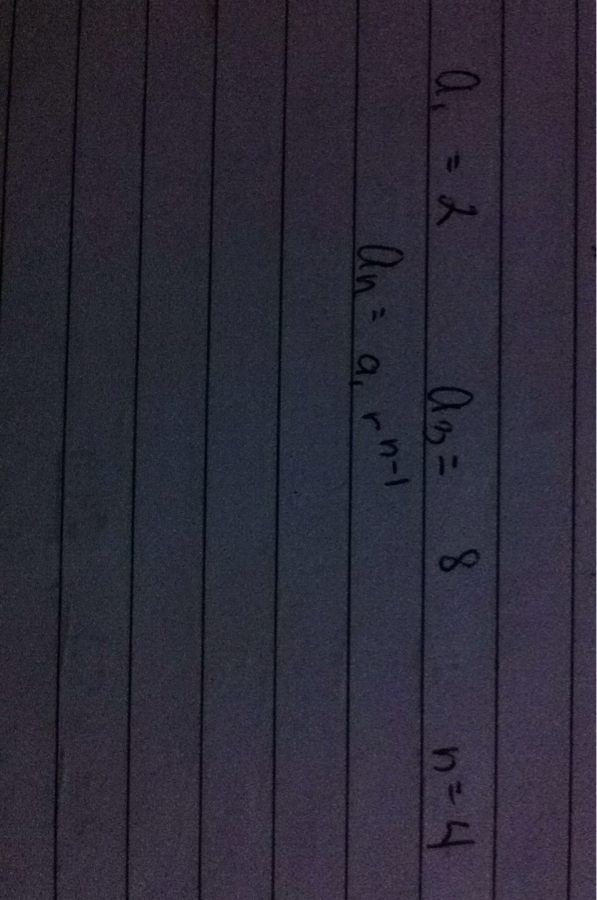 a₁ = 2 a₃ = 8 n = 4
aₙ = a₁ rⁿ⁻¹